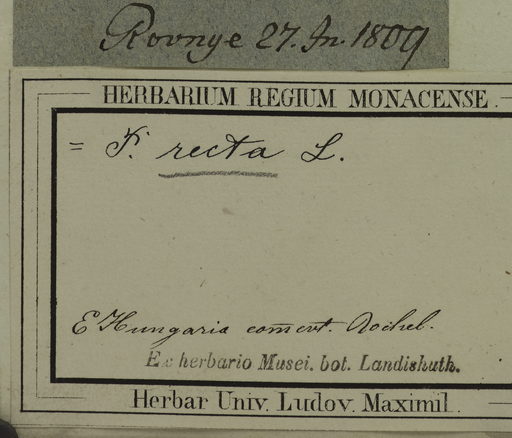 Rovnye 27. Jn. 1809
HERBARIUM REGIUM MONACENSE.
= P. recta L.
E Hungaria com̄ent. Rochel.
Ex herbario Musei. bot. Landishuth.
Herbar Univ. Ludov. Maximil.